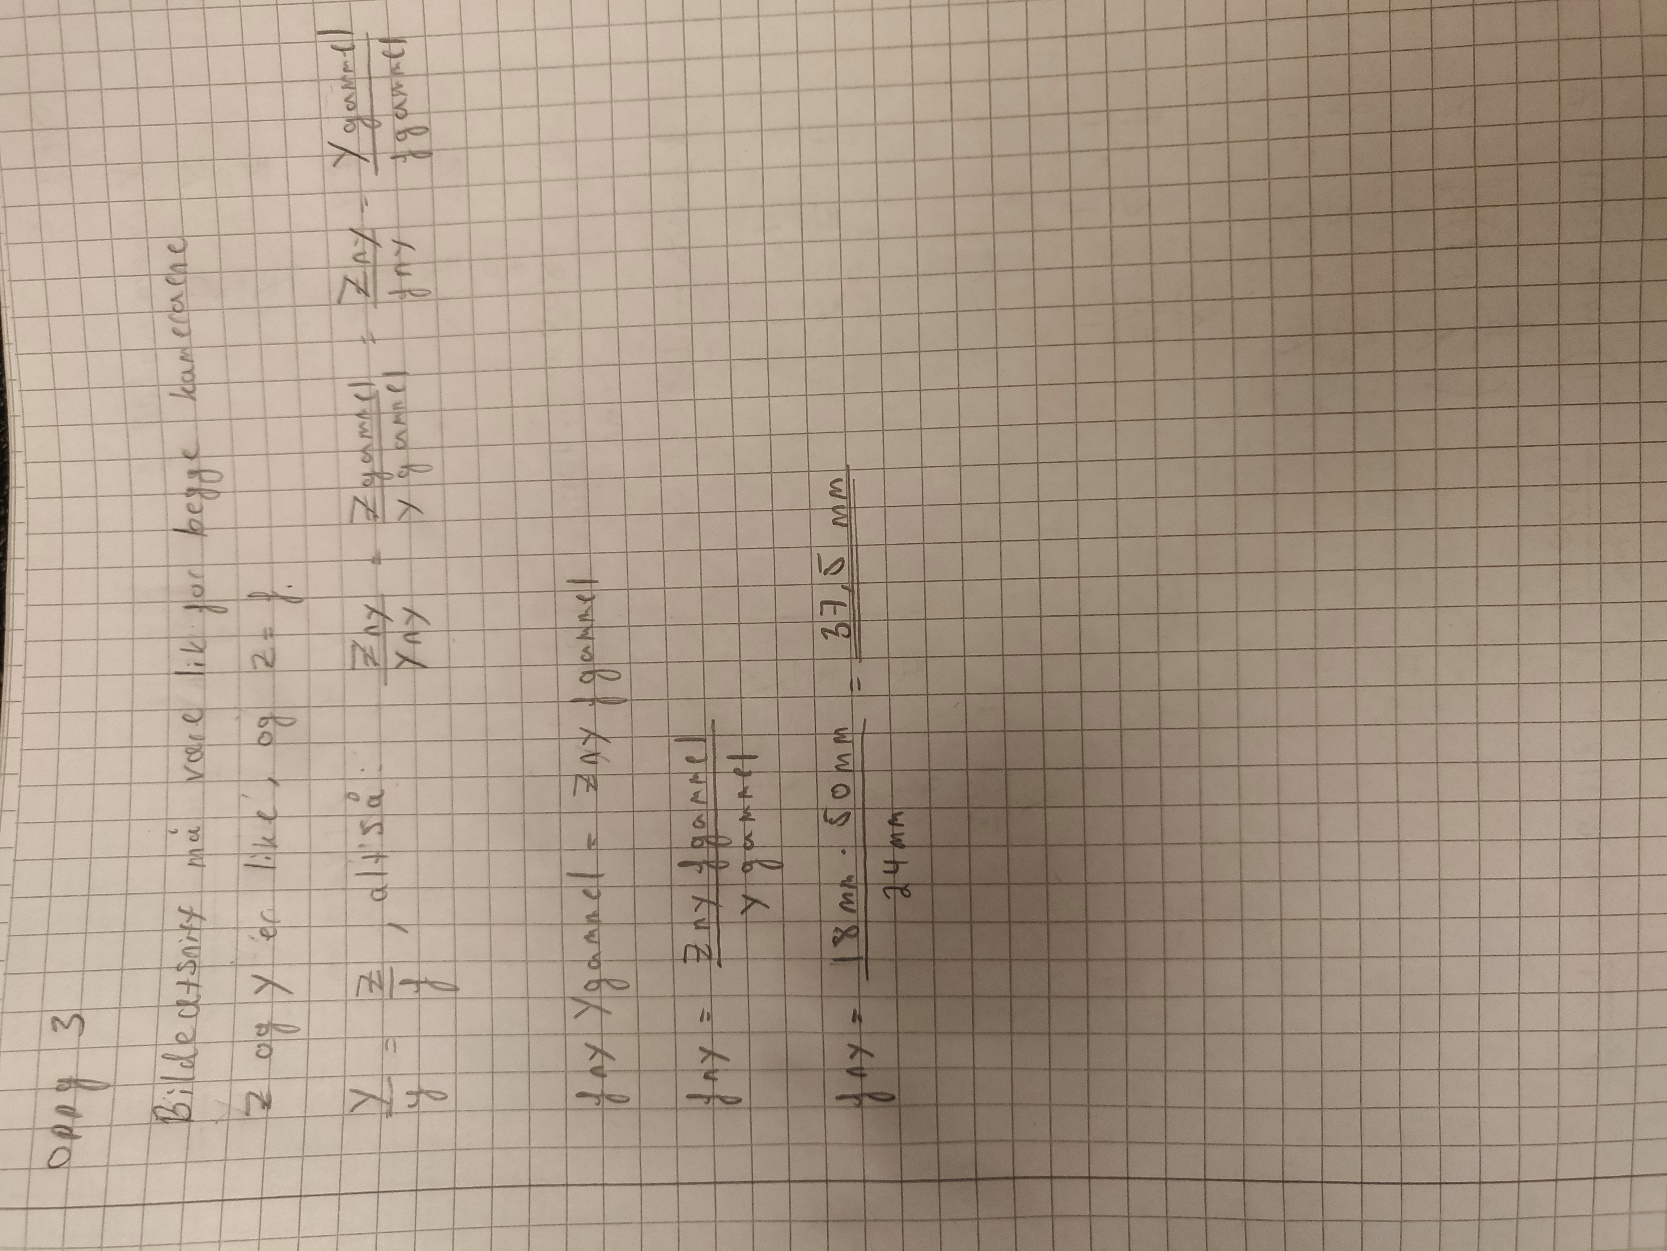 oppg 3
Bildeutsnitt må være lik for begge kameraene
Z og Y er like, og z = f.
Y/y = Z/f, altså: Zny/Yny = Zgammel/Ygammel = Zny/fny = Ygammel/fgammel
fny Ygammel = Zny fgammel
fny = Zny fgammel / Ygammel
fny = 18mm · 50mm / 24mm = 37,5 mm